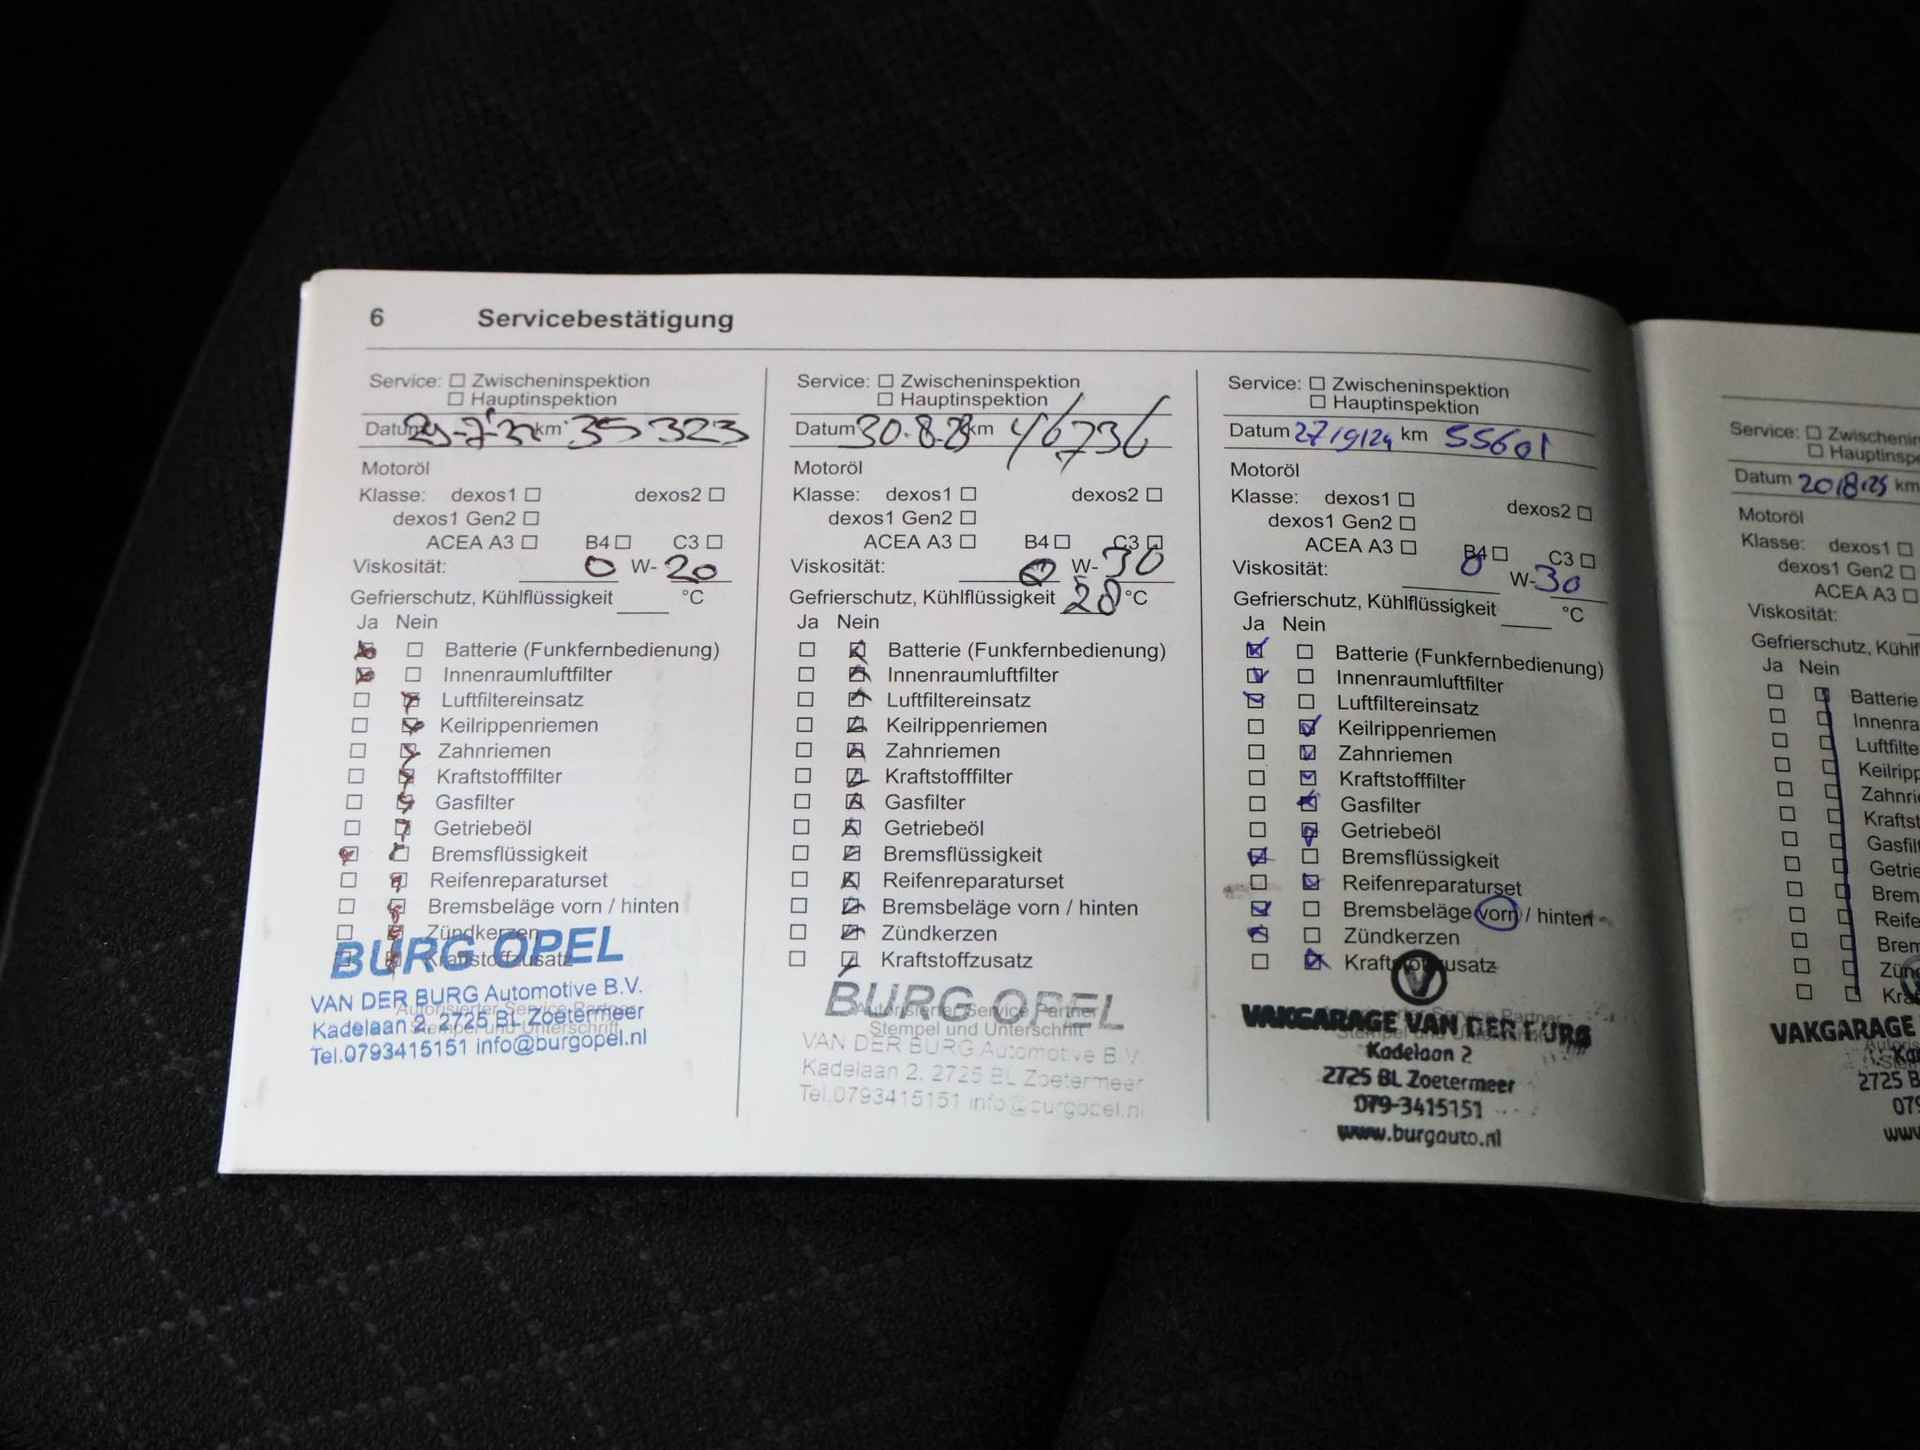 6 Servicebestätigung
Service: Zwischeninspektion
Hauptinspektion
Datum km 35323
Motoröl
Klasse: dexos1 dexos2
dexos1 Gen2
ACEA A3 B4 C3
Viskosität: 0 W-20
Gefrierschutz, Kühlflüssigkeit °C
Ja Nein
Batterie (Funkfernbedienung)
Innenraumluftfilter
Luftfiltereinsatz
Keilrippenriemen
Zahnriemen
Kraftstofffilter
Gasfilter
Getriebeöl
Bremsflüssigkeit
Reifenreparaturset
Bremsbeläge vorn / hinten
Zündkerzen
Kraftstoffzusatz
BURG OPEL
VAN DER BURG Automotive B.V.
Autorisierter Service Partner
Kadelaan 2, 2725 BL Zoetermeer
Stempel und Unterschrift
Tel.0793415151 info@burgopel.nl
Service: Zwischeninspektion
Hauptinspektion
Datum 30.8.23 km 46736
Motoröl
Klasse: dexos1 dexos2
dexos1 Gen2
ACEA A3 B4 C3
Viskosität: 0 W-30
Gefrierschutz, Kühlflüssigkeit 28 °C
Ja Nein
Batterie (Funkfernbedienung)
Innenraumluftfilter
Luftfiltereinsatz
Keilrippenriemen
Zahnriemen
Kraftstofffilter
Gasfilter
Getriebeöl
Bremsflüssigkeit
Reifenreparaturset
Bremsbeläge vorn / hinten
Zündkerzen
Kraftstoffzusatz
BURG OPEL
Autorisierter Service Partner
Stempel und Unterschrift
VAN DER BURG Automotive B.V.
Kadelaan 2, 2725 BL Zoetermeer
Tel.0793415151 info@burgopel.nl
Service: Zwischeninspektion
Hauptinspektion
Datum 27/9/24 km 55601
Motoröl
Klasse: dexos1 dexos2
dexos1 Gen2
ACEA A3 B4 C3
Viskosität: 0 W-30
Gefrierschutz, Kühlflüssigkeit °C
Ja Nein
Batterie (Funkfernbedienung)
Innenraumluftfilter
Luftfiltereinsatz
Keilrippenriemen
Zahnriemen
Kraftstofffilter
Gasfilter
Getriebeöl
Bremsflüssigkeit
Reifenreparaturset
Bremsbeläge vorn / hinten
Zündkerzen
Kraftstoffzusatz
VAKGARAGE VAN DER BURG
Kadelaan 2
2725 BL Zoetermeer
079-3415151
www.burgauto.nl
Service: Zwischenin
Hauptinspe
Datum 20/8/25 km
Motoröl
Klasse: dexos1
dexos1 Gen2
ACEA A3
Viskosität:
Gefrierschutz, Kühlf
Ja Nein
Batterie
Innenra
Luftfilte
Keilripp
Zahnrie
Kraftst
Gasfilt
Getrie
Brem
Reife
Brem
Zünd
Kra
VAKGARAGE
Ka
2725 B
079
www